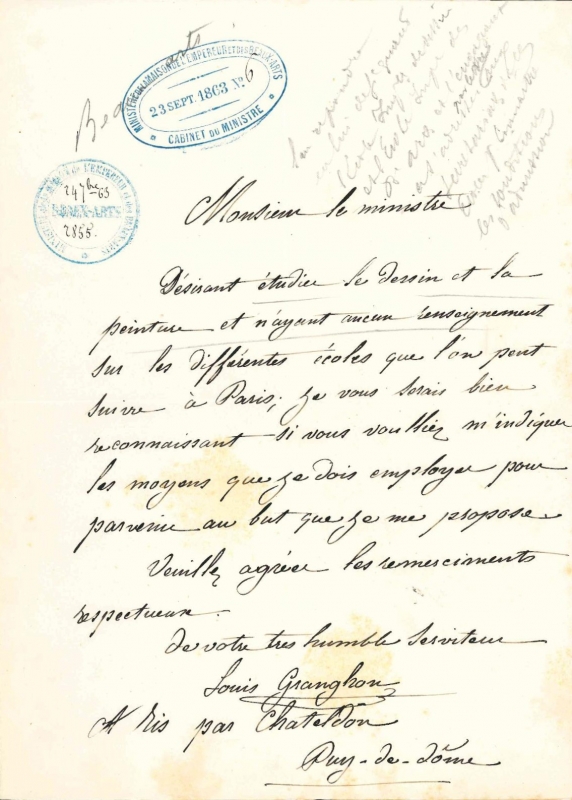 Beaux arts
MINISTÈRE DE LA MAISON DE L'EMPEREUR ET DES BEAUX-ARTS
23 SEPT. 1863 No 6
CABINET DU MINISTRE
24 7bre 63
BEAUX-ARTS
2855.
lui répondre
en lui indiquant
l'école Imp. de dessin
et l'école Imp. des
B. arts et
Monsieur le ministre
Désirant étudier le dessin et la
peinture et n'ayant aucun renseignement
sur les différentes écoles que l'on peut
suivre à Paris; je vous serais bien
reconnaissant si vous vouliez m'indiquer
les moyens que je dois employer pour
parvenir au but que je me propose.
Veuillez agréer les remerciments
respectueux.
de votre tres humble serviteur
Louis Granghon
A Ris par Chateldôn
Puy-de-dôme